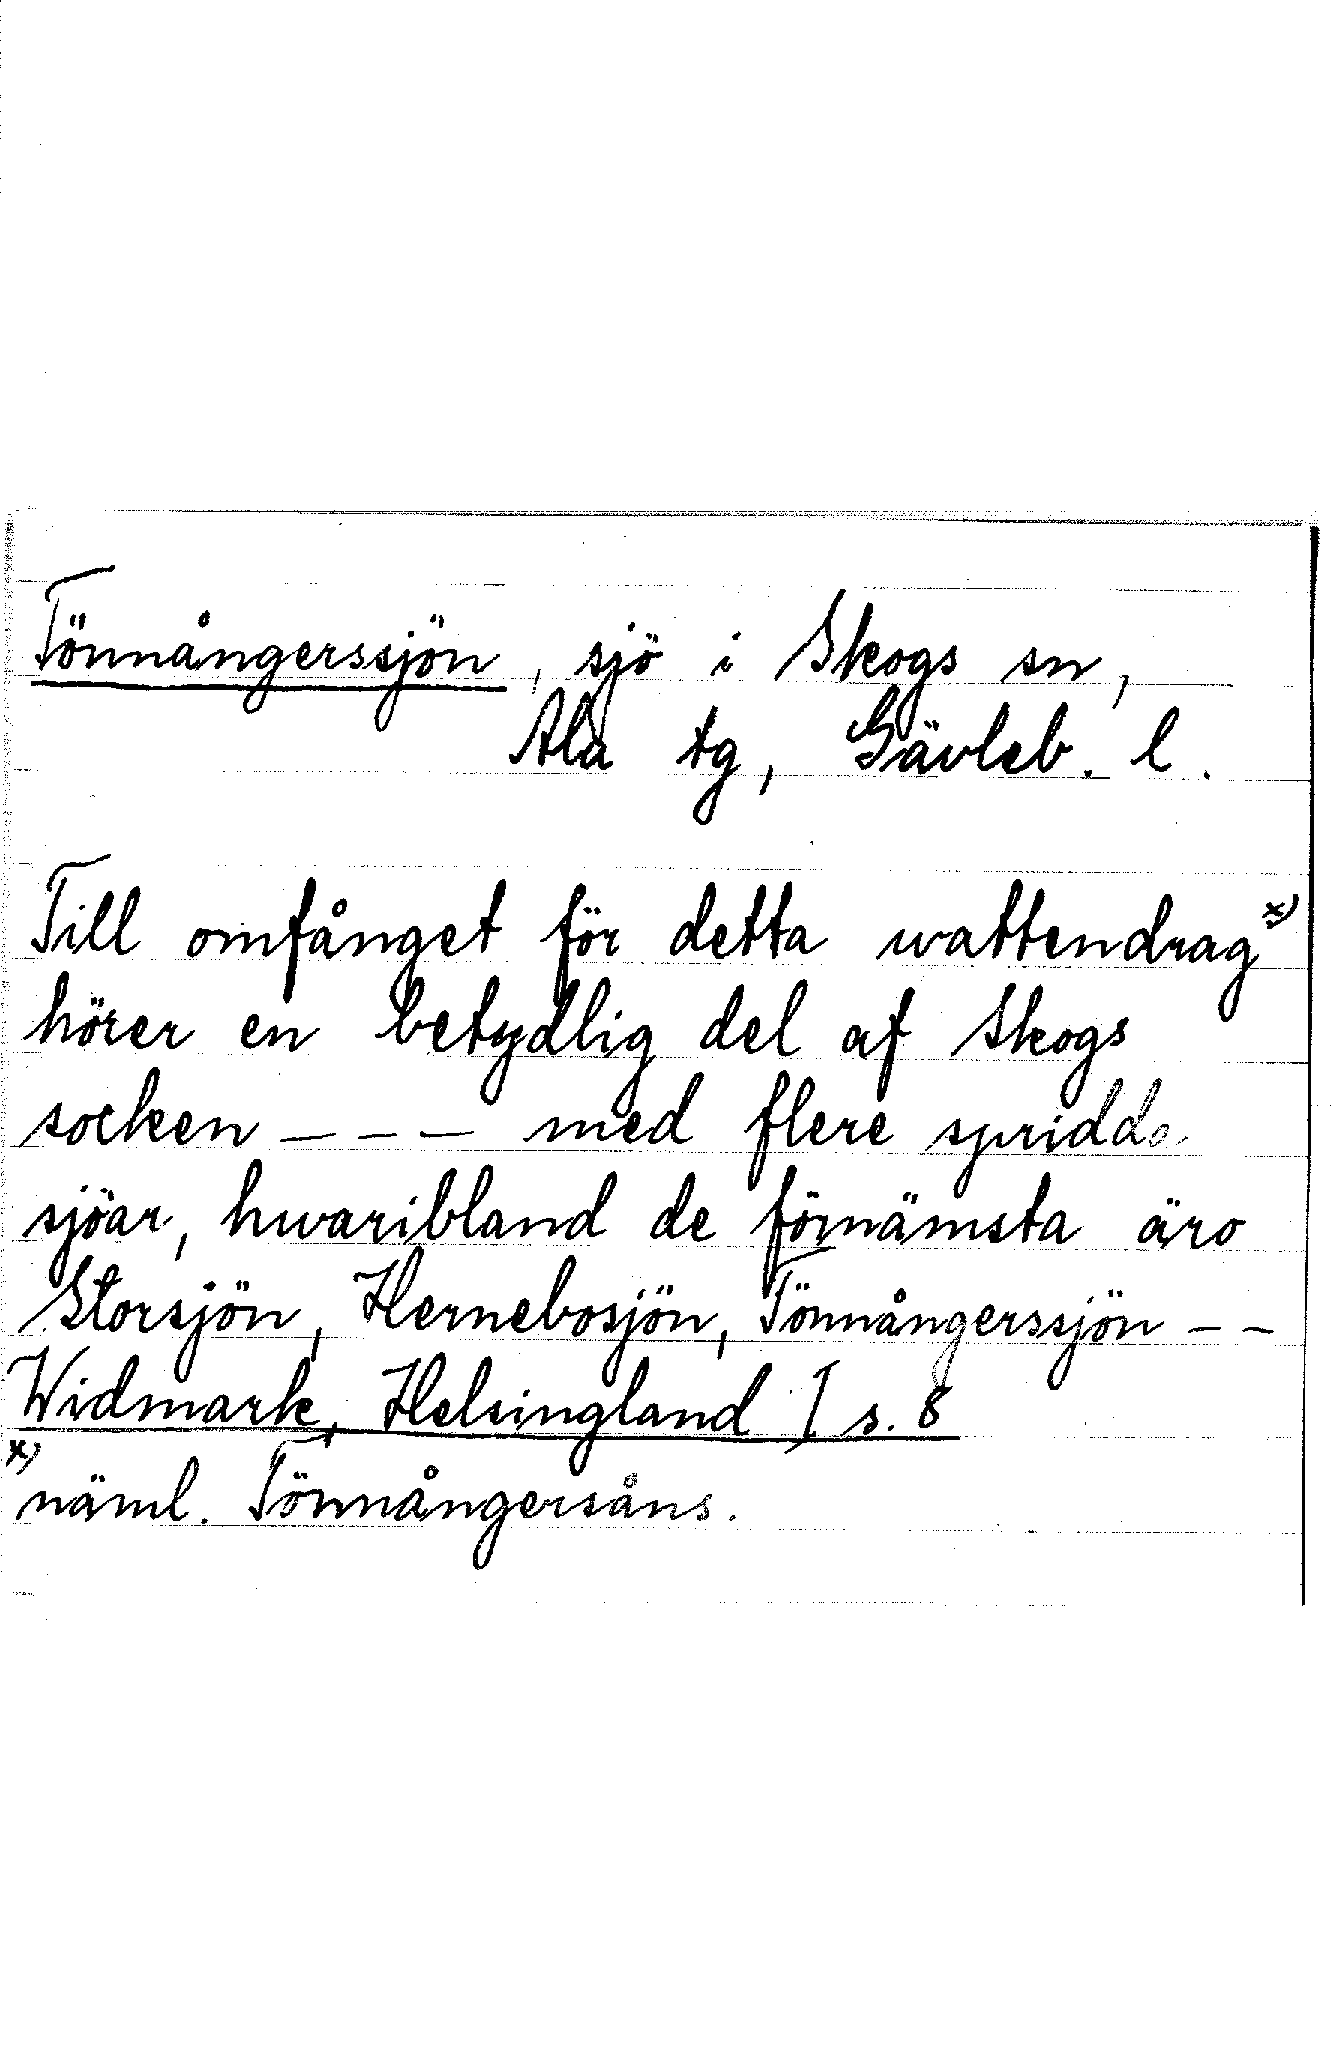 Tönnångerssjön, sjö i Skogs sn,
Ala tg, Gävleb. l.
Till omfånget för detta wattendrag x)
hörer en betydlig del af Skogs
socken – – – med flere spridda
sjöar, hwaribland de förnämsta äro
Storsjön, Hernebosjön, Tönnångerssjön – –
Widmark, Helsingland I s. 8
x) näml. Tönnångersåns.